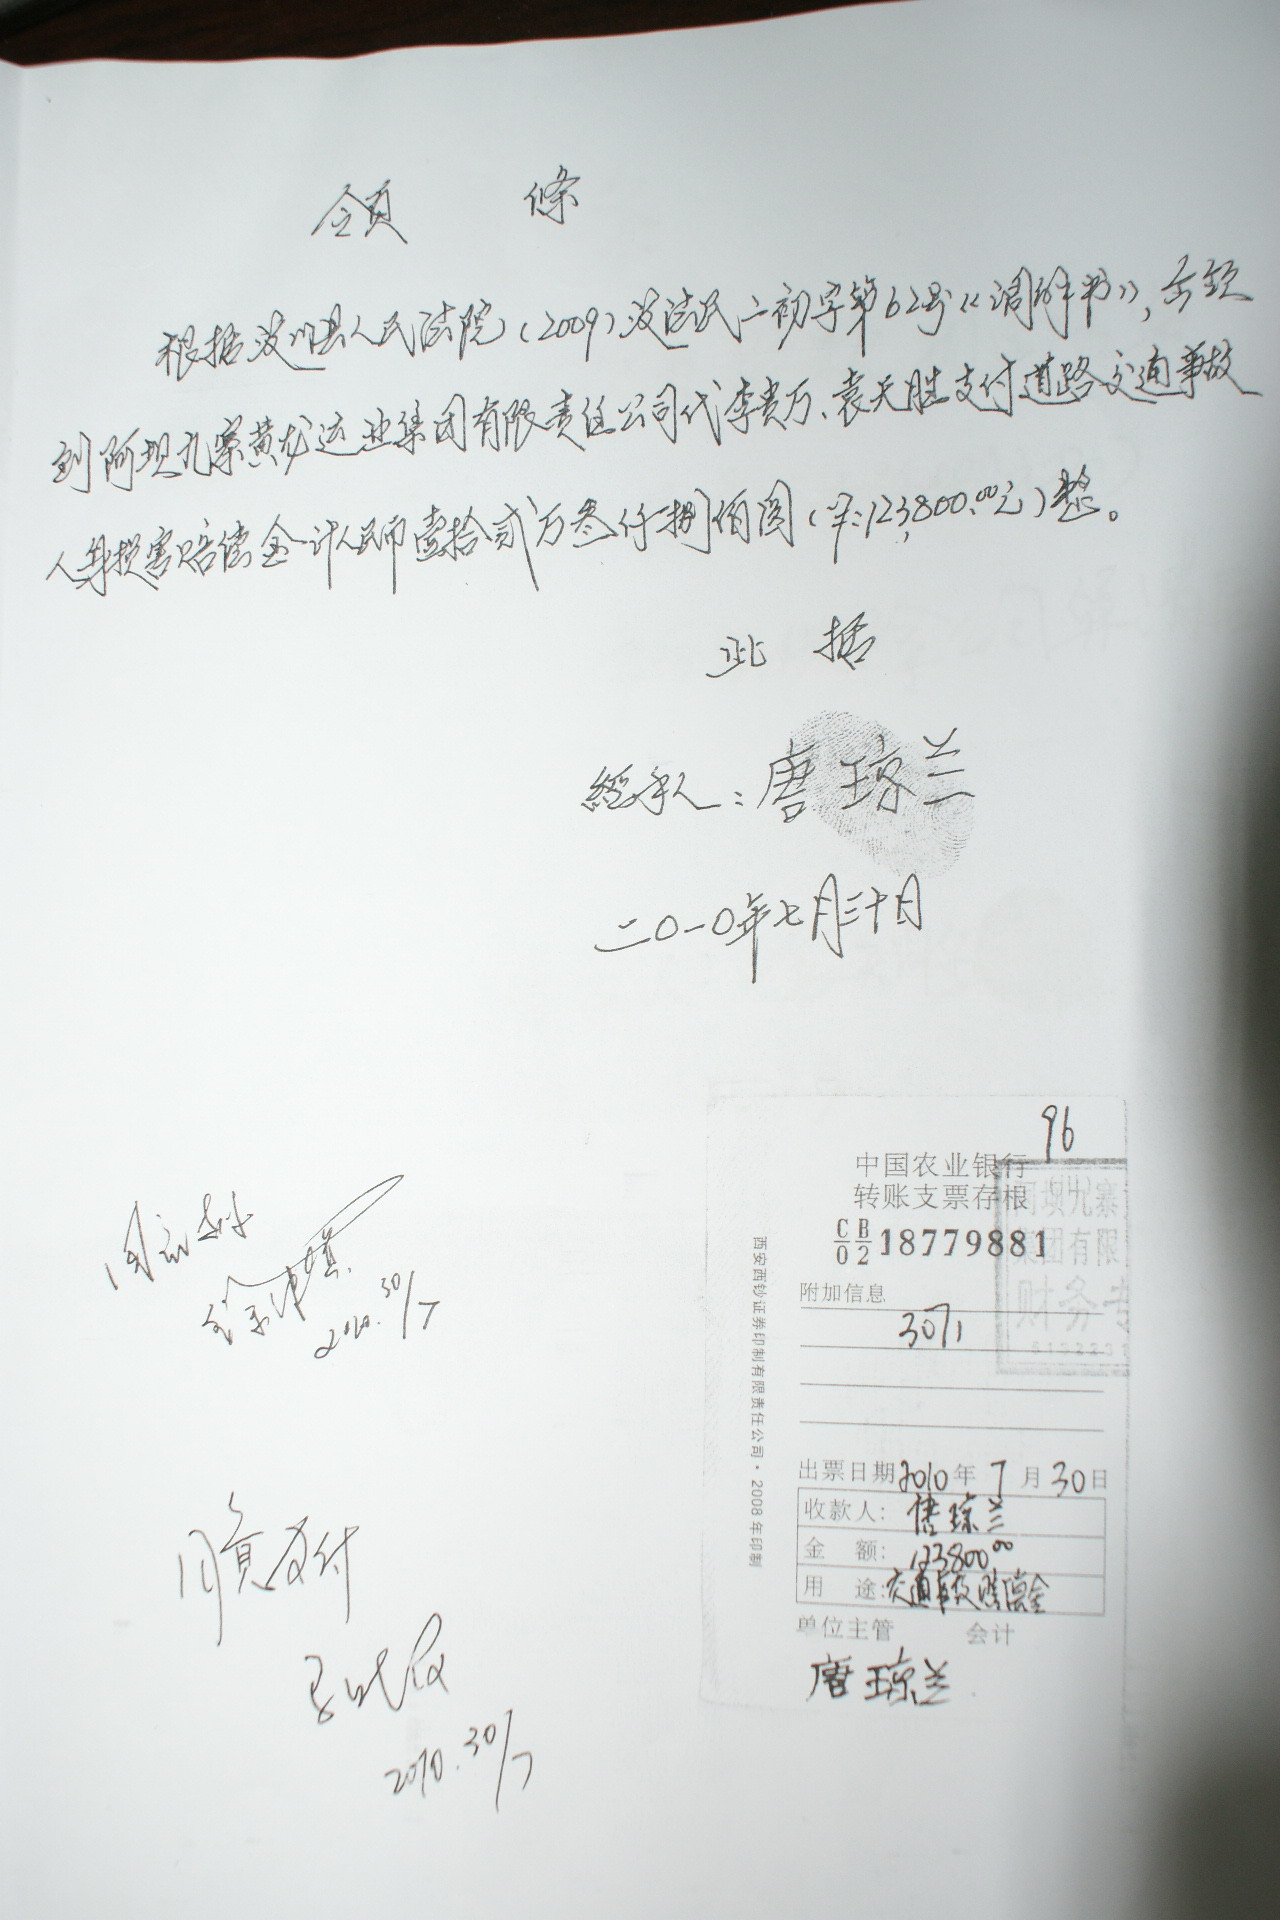 领 條
根据汶川县人民法院(2009)汶法民二初字第62号《调解书》,今领
到阿坝九寨黄龙运业集团有限责任公司代李贵万、袁天胜支付道路交通事故
人身损害赔偿金计人民币壹拾贰万叁仟捌佰圆(¥:123,800.00元)整。
此 据
經手人:唐琼兰
二0一0年七月三十日
96
中国农业银行
转账支票存根
阿坝九寨
集团有限
财务专
CB
02 18779881
附加信息
3071
西安西钞证券印制有限责任公司·2008年印制
2010.30/7
出票日期 2010年7月30日
收款人:唐琼兰
金 额:123800.00
用 途:交通事故赔偿金
单位主管 会计
唐琼兰
同意支付
2010.30/7